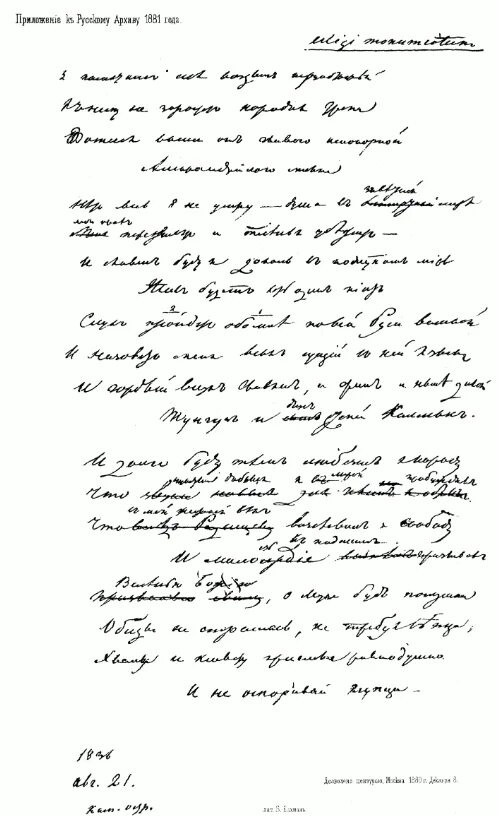 Приложеніе къ Русскому Архиву 1881 года.
Exegi monumentum
Я памятникъ себѣ воздвигъ нерукотворный
Къ нему не заростетъ народная тропа
Вознесся выше онъ главою непокорной
Александрійскаго столпа
Нѣтъ весь я не умру — душа въ завѣтной лирѣ
Мой прахъ переживетъ и тлѣнья убѣжитъ —
И славенъ буду я доколь въ подлунномъ мірѣ
Живъ будетъ хоть одинъ піитъ
Слухъ обо мнѣ пройдетъ по всей Руси великой
И назоветъ меня всякъ сущій въ ней языкъ
И гордый внукъ Славянъ, и Финнъ, и нынѣ дикой
Тунгузъ и другъ степей Калмыкъ.
И долго буду тѣмъ любезенъ я народу
Что чувства добрыя я лирой пробуждалъ
Что въ мой жестокій вѣкъ возславилъ я свободу
И милость къ падшимъ призывалъ
Велѣнью Божію, о муза будь послушна
Обиды не страшась, не требуя вѣнца;
Хвалу и клевету пріемли равнодушно
И не оспоривай глупца —
1836
авг. 21.
Кам. остр.
Дозволено цензурою, Москва, 1880 г. Декабря 8.